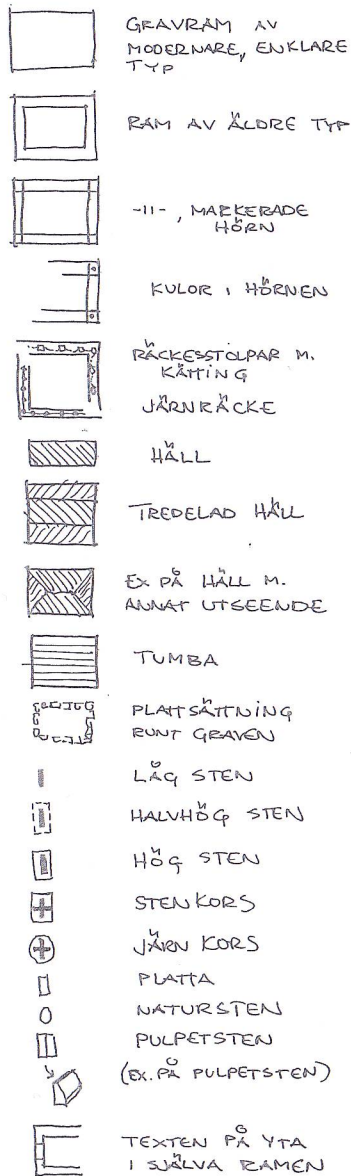 GRAVRAM AV
MODERNARE, ENKLARE
TYP
RAM AV ÄLDRE TYP
-11- , MARKERADE
HÖRN
KULOR I HÖRNEN
RÄCKESSTOLPAR M.
KÄTTING
JÄRNRÄCKE
HÄLL
TREDELAD HÄLL
EX PÅ HÄLL M.
ANNAT UTSEENDE
TUMBA
PLATTSÄTTNING
RUNT GRAVEN
LÅG STEN
HALVHÖG STEN
HÖG STEN
STENKORS
JÄRN KORS
PLATTA
NATURSTEN
PULPETSTEN
(EX. PÅ PULPETSTEN)
TEXTEN PÅ YTA
I SJÄLVA RAMEN